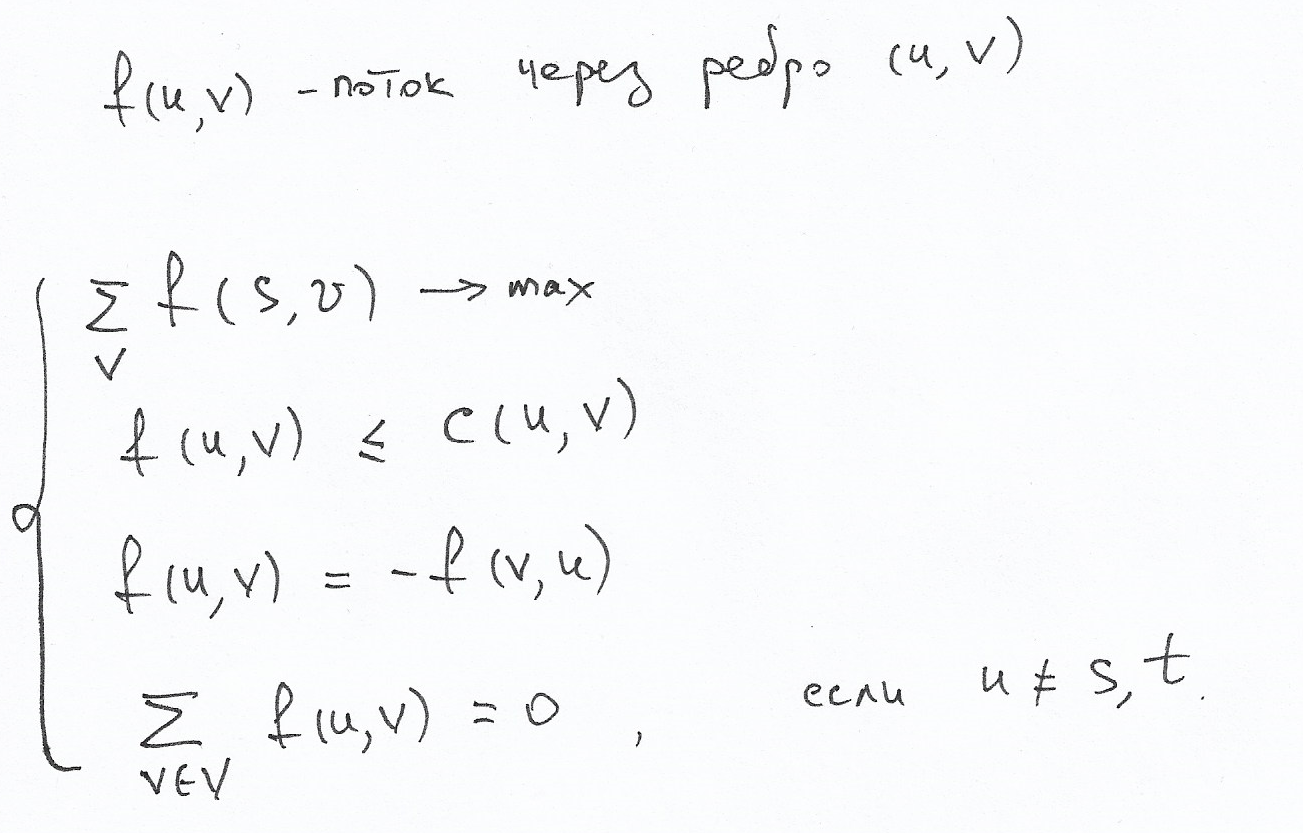 f(u,v) - поток через ребро (u,v)
∑ f(s,v) → max
v
f(u,v) ≤ c(u,v)
f(u,v) = -f(v,u)
∑ f(u,v) = 0 , если u ≠ s,t.
v∈V